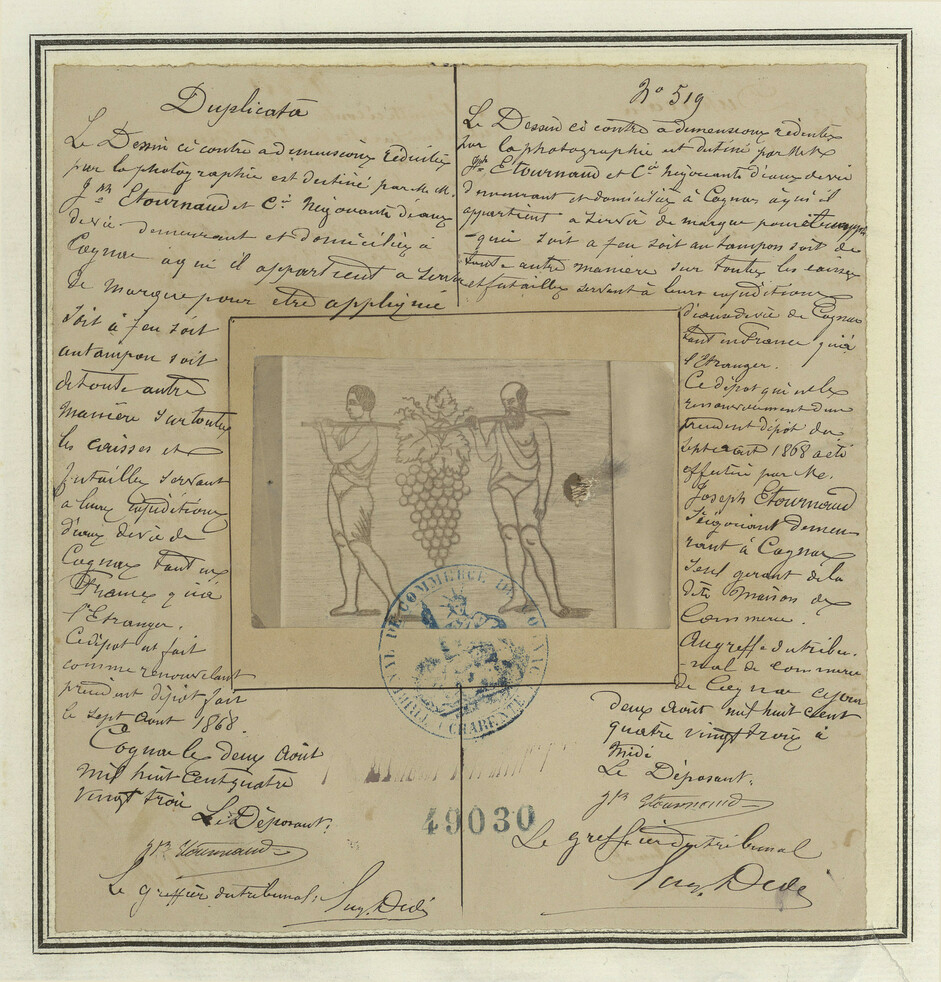 Duplicata
Le Dessin ci contre a dimensions réduites
par la photographie est destiné par M.M.
Jph Etournaud et Cie Négociants d'eaux
de vie demeurant et domiciliés à
Cognac à qui il appartient a servir
de marque pour être appliqué
soit à feu soit
au tampon soit
de toute autre
manière sur toutes
les caisses et
futailles servant
à leurs expéditions
d'eaux de vie de
Cognac tant en
France qu'à
l'Etranger.
Ce dépôt est fait
comme renouvelant
précédent dépôt fait
le sept Août 1868.
Cognac le deux Août
mil huit cent quatre
vingt trois
Le Déposant:
Jph Etournaud
Le greffier du tribunal:
Eug. Dedé
No 519
Le Dessin ci contre a dimensions réduites
par la photographie est destiné par M.M.
Jph Etournaud et Cie Négociants d'eaux de vie
demeurant et domiciliés à Cognac à qui il
appartient a servir de marque pour être appli
-qué soit a feu soit au tampon soit de
toute autre manière sur toutes les caisses
et futailles servant à leurs expéditions
d'eaux de vie de Cognac
tant en France qu'à
l'Etranger.
Ce dépôt qui est le
renouvellement d'un
précédent dépôt du
sept août 1868 a été
effectué par M.
Joseph Etournaud
Négociant demeu-
rant à Cognac
seul gérant de la
dite maison de
Commerce.
Au greffe du tribu-
-nal de commerce
de Cognac ce jour
deux Août mil huit cent
quatre vingt trois à
midi
Le Déposant:
Jph Etournaud
Le greffier du tribunal
Eug. Dedé
TRIBUNAL DE COMMERCE DE COGNAC
CHARENTE
49030